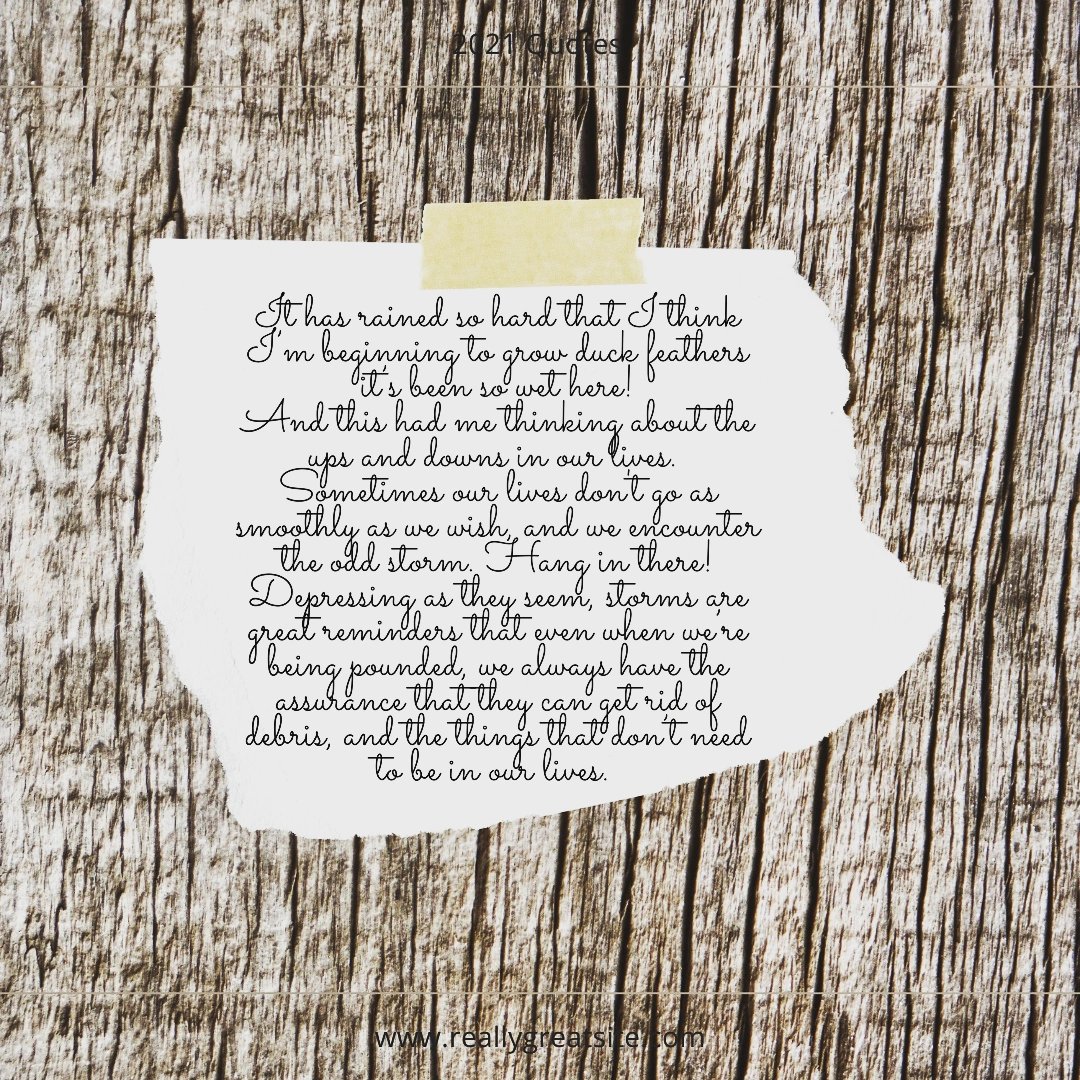 2021 Quotes
It has rained so hard that I think
I'm beginning to grow duck feathers
it's been so wet here!
And this had me thinking about the
ups and downs in our lives.
Sometimes our lives don't go as
smoothly as we wish, and we encounter
the odd storm. Hang in there!
Depressing as they seem, storms are
great reminders that even when we're
being pounded, we always have the
assurance that they can get rid of
debris, and the things that don't need
to be in our lives.
www.reallygreatsite.com